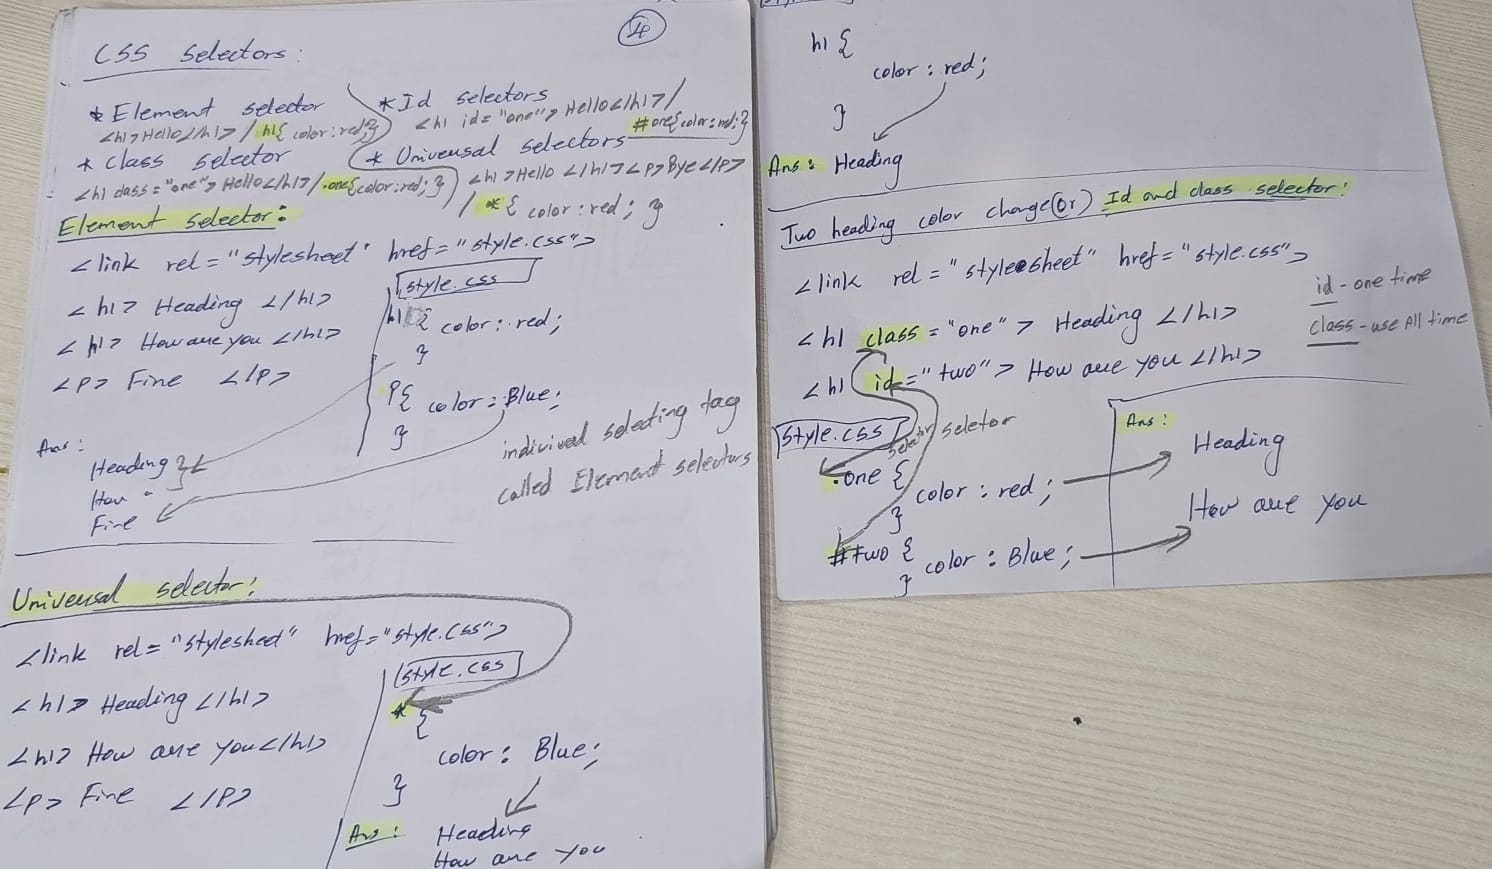 4
CSS Selectors:
* Element selector
<h1>Hello</h1> / h1{ color:red;}
* Class selector
<h1 class="one">Hello</h1> / .one{color:red;}
* Id selectors
<h1 id="one">Hello</h1> /
#one{color:red;}
* Universal selectors
<h1>Hello</h1><p>Bye</p>
/ *{ color:red; }
Element selector:
<link rel="stylesheet" href="style.css">
<h1> Heading </h1>
<h1> How are you </h1>
<p> Fine </p>
style.css
h1{ color: red;
}
P{ color: Blue;
}
Ans:
Heading }
How
Fine
selecting tag
called Element selectors
Universal selector:
<link rel="stylesheet" href="style.css">
<h1> Heading </h1>
<h1> How are you</h1>
<p> Fine </p>
style.css
* {
color: Blue;
}
Ans: Heading
How are you
h1 {
color: red;
}
Ans: Heading
Two heading color change (or) Id and class selector:
<link rel="stylesheet" href="style.css">
<h1 class="one"> Heading </h1>
<h1 id="two"> How are you </h1>
id - one time
class - use All time
style.css
selector seletor
.one {
color: red;
}
#two {
color: Blue;
}
Ans:
Heading
How are you